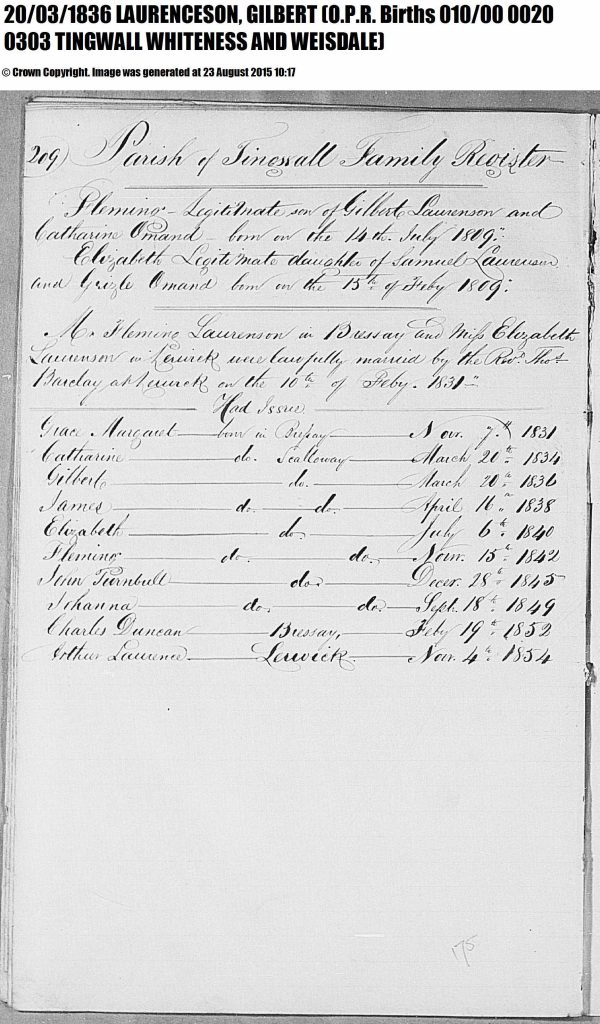 20/03/1836 LAURENCESON, GILBERT (O.P.R. Births 010/00 0020
0303 TINGWALL WHITENESS AND WEISDALE)
© Crown Copyright. Image was generated at 23 August 2015 10:17
209) Parish of Tingwall Family Register
Fleming - Legitimate son of Gilbert Laurenson and
Catharine Omand born on the 14th. July 1809.
Elizabeth Legitimate daughter of Samuel Laurenson
and Grizle Omand born on the 15th. of Feby 1809.
Mr. Fleming Laurenson in Bressay and Miss Elizabeth
Laurenson in Lerwick were lawfully married by the Revd. Thos.
Barclay at Lerwick on the 10th. of Feby. 1831
Had Issue
Grace Margaret born in Bressay Novr. 7th. 1831
Catharine do. Scalloway March 20th. 1834
Gilbert do. March 20th. 1836
James do. do. April 16th. 1838
Elizabeth do. July 6th. 1840
Fleming do. do. Novr. 15th. 1842
John Turnbull do. Decer. 28th. 1845
Johanna do. do. Sept. 18th. 1849
Charles Duncan Bressay, Feby 19th. 1852
Arthur Laurence Lerwick. Nov. 4th. 1854
175